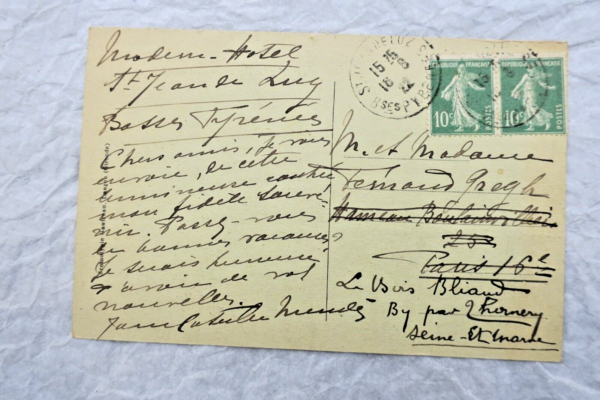 Modern-Hotel
St Jean de Luz
Basses Pyrénées
Chers amis, je vous
envoie, de cette
lumineuse contrée
mon fidèle souve-
nir. Passez-vous
de bonnes vacances?
Je serais heureuse
d'avoir de vos
nouvelles.
Jane Catulle Mendès
ST JEAN DE LUZ
15 15
16 8
Bses PYRENEES
REPUBLIQUE FRANÇAISE
10c
POSTES
REPUBLIQUE FRANÇAISE
10c
POSTES
M. et Madame
Fernand Gregh
Hameau Boulainvilliers
25
Paris 16e
Le Bois Bliaud
By par Thomery
Seine-Et-Marne